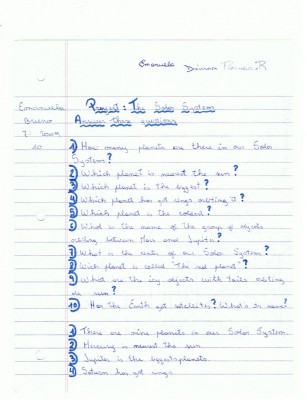 Emanuela
Emanuela
Bueno
10
Project: The Solar System
Answer these questions
1 How many planets are there in our Solar
System?
2 Which planet is nearest the sun?
3 Which planet is the biggest?
4 Which planet has got rings orbiting it?
5 Which planet is the coldest?
6 What is the name of the group of objects
orbiting between Mars and Jupiter?
7 What is the centre of our Solar System?
8 Wich planet is called The red planet?
9 What are the icy objects with tails orbiting
the sun?
10 Has the Earth got satellites? What's its name?
1 There are nine planets in our Solar System.
2 Mercury is nearest the sun
3 Jupiter is the biggest planets.
4 Saturn has got rings